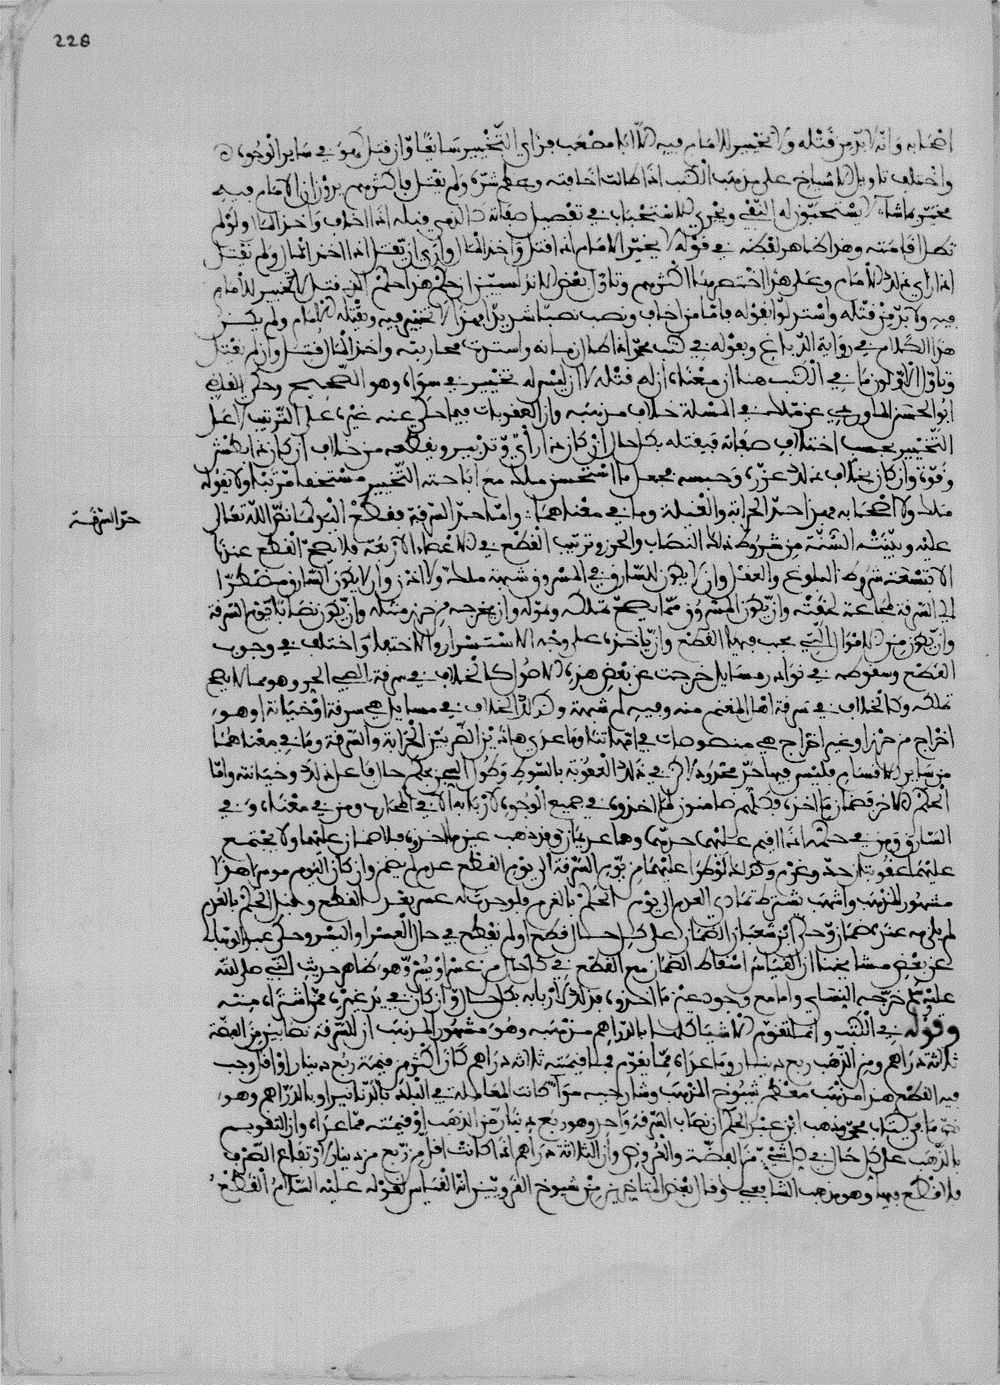 228
اصحابه وانه لا بد من قتله ولا تخيير للامام فيه الا ابا مصعب فراى التخيير سابقا وان قتل كهو في ساير الوجوه
واختلف تاويل الاشياخ على مذهب الكتاب اذا طالت اخافته وعظم شره ولم يقتل فاكثرهم يرون ان الامام فيه
مخير ما شاء
تطل اقامته وهذا ظاهر لفظه في قوله يخير الامام اذا قتل واخذ المال او ارى ان يقتل اذا اخذ المال ولم يقتل
اذا راى ذلك الامام وعلى هذا اختصرها اكثرهم وتاول بعض الاندلسيين ان حكم هذا حكم الذي قتل لا تخيير للامام
فيه ولا بد من قتله واستدلوا بقوله فاما من اخاف ونصب نصبا شديدا فهذا لا تخيير فيه ويقتله الامام ولم يكن
هذا الكلام في رواية الدباغ وبقوله في كتاب محمد اذا طال زمانه واشتدت محاربته واخذ المال قتل وان لم يقتل
وتاول الاولون ما في الكتاب هنا ان معناه ان له قتله لا ان ليس له تخيير في سواه وهو الصحيح وحكى القاضي
ابو الحسن الماوردي عن ملك في المسئلة خلاف مذهبه وان العقوبات فيما حكى عنه غيره على الترتيب لا على
التخيير بحسب اختلاف صفاته فيقتله بكل حال ان كان ذا راي وتدبير ويقطعه من خلاف ان كان ذا بطش
وقوة وان كان بخلاف ذلك عزره وحبسه فجعل ما استحسن ملك مع اباحته التخيير مستحقا مرتبا ولا يقوله
ملك ولا اصحابه
حد السرقة
عليه وبينت السنة من شروط ذلك النصاب والحرز وترتيب القطع في الاعضاء الاربعة فلا يصح القطع عندنا
الا بتسعة شروط البلوغ والعقل وان لا يكون للسارق في المسروق شبهة ملك ولا اذن وان لا يكون السارق مضطرا
الى السرقة لمجاعة لحقته وان يكون المسروق مما يصح تملكه وتموله وان يخرجه من حرز مثله وان يكون نصابا يوم السرقة
وان يكون من الاموال التي يجب فيها القطع وان ياخذه على وجه الاستسرار والاحتيال واختلف في وجوب
القطع وسقوطه في نوادر ومسايل خرجت عن بعض هذه الاصول كالخلاف في سرقة الصبي الحر وهو مما لا يصح
تملكه وكالخلاف في سرقة اهل المغنم منه وفيه لهم شبهة وكذلك الخلاف في مسايل هي سرقة او خيانة او هو
اخراج من حرز او غير اخراج هي منصوصات في امهاتنا وما عدى هاذين الضربين الحرابة والسرقة وما في معناهما
من ساير الاقسام فليس فيها حد محدود لكن في ذلك العقوبة بالسوط وطول السجن بحكم حال فاعل ذلك وخيانته واما
الحكم الاخر فضمان ما اخذ، فكلهم ضامنون لما اخذوه في جميع الوجوه لاربابه الا في المحارب ومن في معناه، وفي
السارق ومن في حكمه اذا اقيم عليهما حدهما وهما عديمان وقد ذهب عين ما اخذوه فلا ضمان عليهما ولا يجتمع
عليهما عقوبتان حد وغرم وكذلك لو طرا عليهما من يوم السرقة الى يوم القطع عدم لم يضمن وان كان اليوم موسرا هذا
مشهور المذهب واشهب يشترط تمادي العدم الى يوم الحكم بالغرم فلو حدث له عسر بعد القطع وقبل الحكم بالغرم
لم يلزمه عنده ضمان وحكى ابن شعبان الضمان على كل حال قطع او لم يقطع في حال العسر او اليسر وحكى عبد الوهاب
عن بعض مشايخنا ان القياس اسقاط الضمان مع القطع في كل حال من عسر او يسر وهو ظاهر حديث النبي صلى الله
عليه وسلم خرجه النساي واما مع وجود عين ما اخذوه فذلك لاربابه بكل حال وان كان في يد غيره ممن اشتراه منه
وقوله في الكتاب وانما تقوم الاشيا كلها بالدراهم مذهبه وهو مشهور المذهب ان للسرقة نصابين من الفضة
ثلاثة دراهم ومن الذهب ربع دينار وما عداه مما يقوم فما قيمته ثلاثة دراهم كان اكثر من قيمة ربع دينار او اقل وجب
فيه القطع هذا مذهب معظم شيوخ المذهب وشارحيه سوا كانت المعاملة في البلد بالدنانير او بالدراهم وهو
نص ما في كتاب محمد وذهب ابن عبد الحكم ان نصاب السرقة واحد وهو ربع دينار من الذهب او قيمته مما عداه وان التقويم
بالذهب على كل حال في كل شيء من الفضة والعروض وان الثلاثة دراهم اذا كانت اقل من ربع من دينار لارتفاع الصرف
فلا قطع فيها وهو مذهب الشافعي وقال بعض المتاخرين من شيوخ القرويين انه القياس لقوله عليه السلام القطع